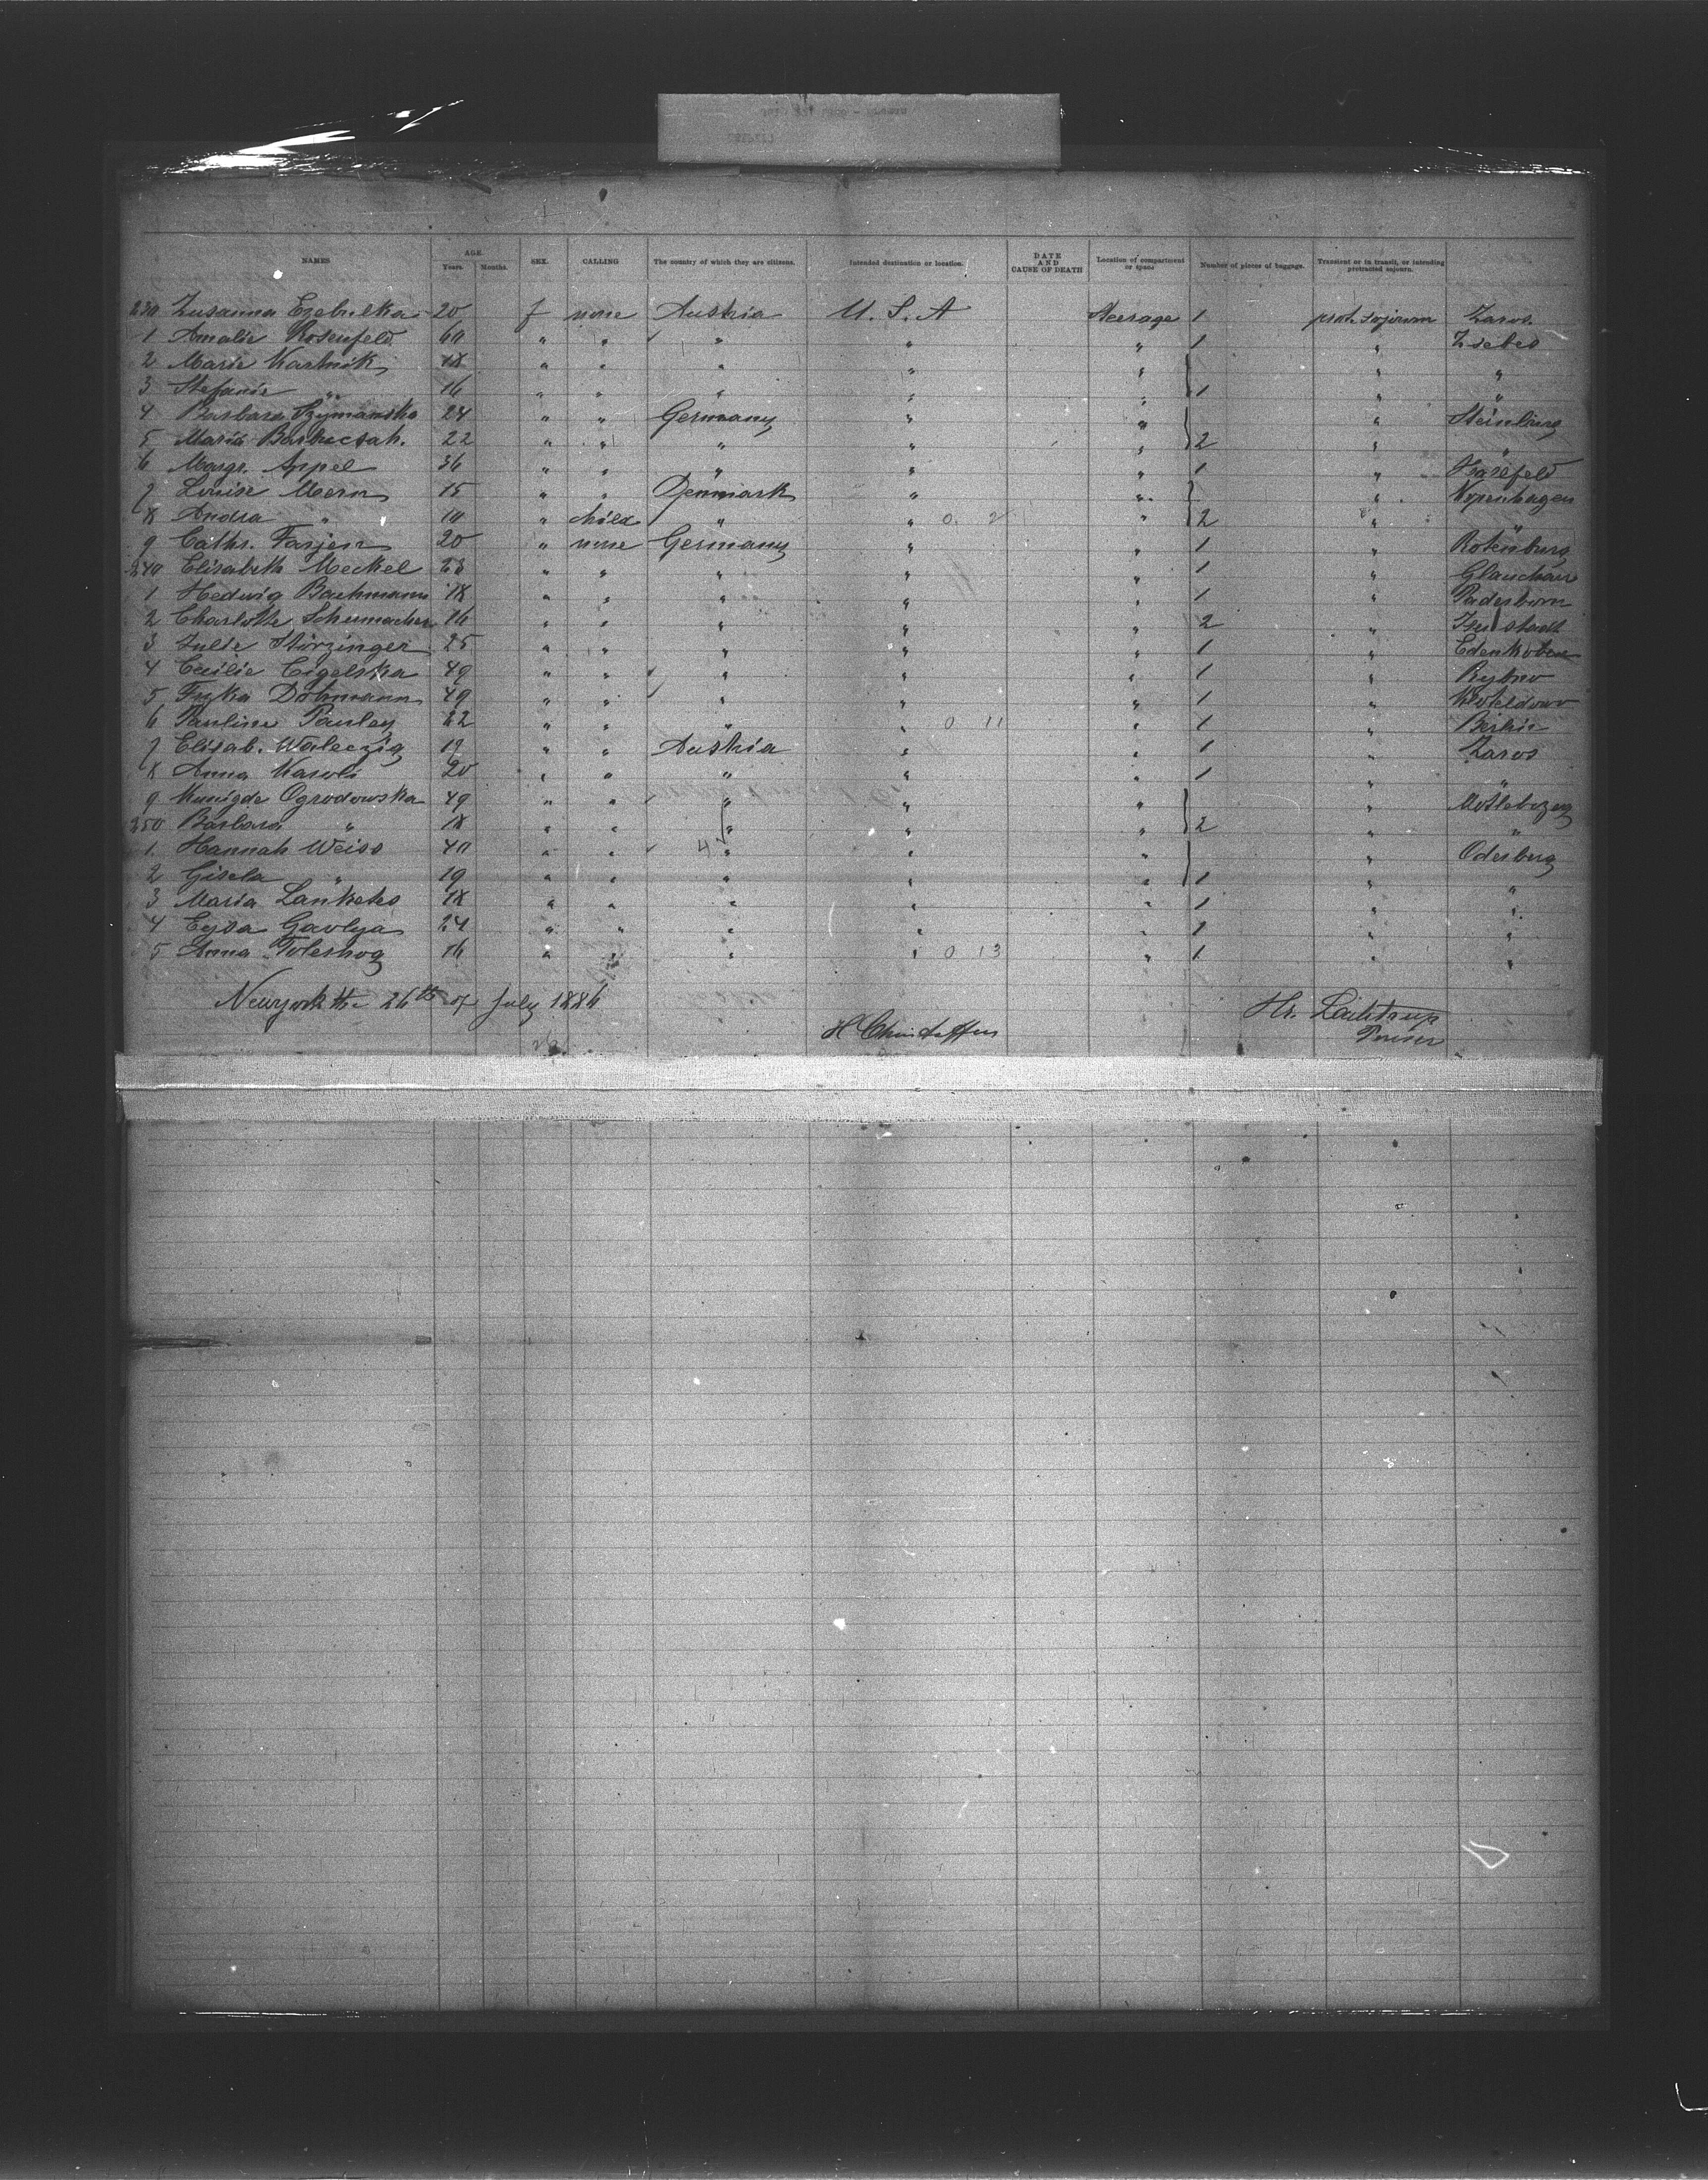 NAMES AGE Years. Months. SEX. CALLING The country of which they are citizens. Intended destination or location. DATE AND CAUSE OF DEATH Location of compartment or space Number of pieces of baggage. Transient or in transit, or intending protracted sojourn.
230 Susanna 20 f none Austria U. S. A Steerage 1 prot. sojourn Zaros
1 Amalie Rosenfeld 60 " " " " " 1 " Zsebes
2 Marie Kasknik 18 " " " " " " "
3 Stefanie " 16 " " " " " 1 " "
4 Barbara Szymanska 24 " " Germany " " " Steinburg
5 Maria 22 " " " " " 2 " "
6 Margr. Appel 36 " " " " " 1 " Harsfeld
7 Louise Mern 15 " " Denmark " " " Kopenhagen
8 Andra " 10 " child " " 0 2 " 2 " "
9 Cathr. Fasjen 20 " none Germany " " 1 " Rotenburg
240 Elisabeth Meckel 23 " " " " " 1 " Glauchau
1 Hedwig Bachmann 18 " " " " " 1 " Paderborn
2 Charlotte Schumacher 16 " " " " " 2 "
3 Julie Störzinger 25 " " " " " 1 " Edenkoben
4 Cecilie Cigelska 49 " " " " " 1 " Rybno
5 Dohmann 49 " " " " " 1 "
6 Pauline Pauley 22 " " " " 0 11 " 1 " Berlin
7 Elisab. Waleczig 19 " " Austria " " 1 " Zaros
8 Anna Karoli 20 " " " " " 1 " "
9 Kunigde Ogrodowska 49 " " " " " "
250 Barbara " 18 " " " " " 2 " "
1. Hannah Weiss 40 " " 4 " " " " Oderberg
2 Gisela " 19 " " " " " 1 " "
3 Maria Lankeks 18 " " " " " 1 " "
4 Gavlya 24 " " " " " 1 " "
5 Anna 16 " " " " 0 13 " 1 " "
Newyork the 26th of July 1886 Hr.
H Purser